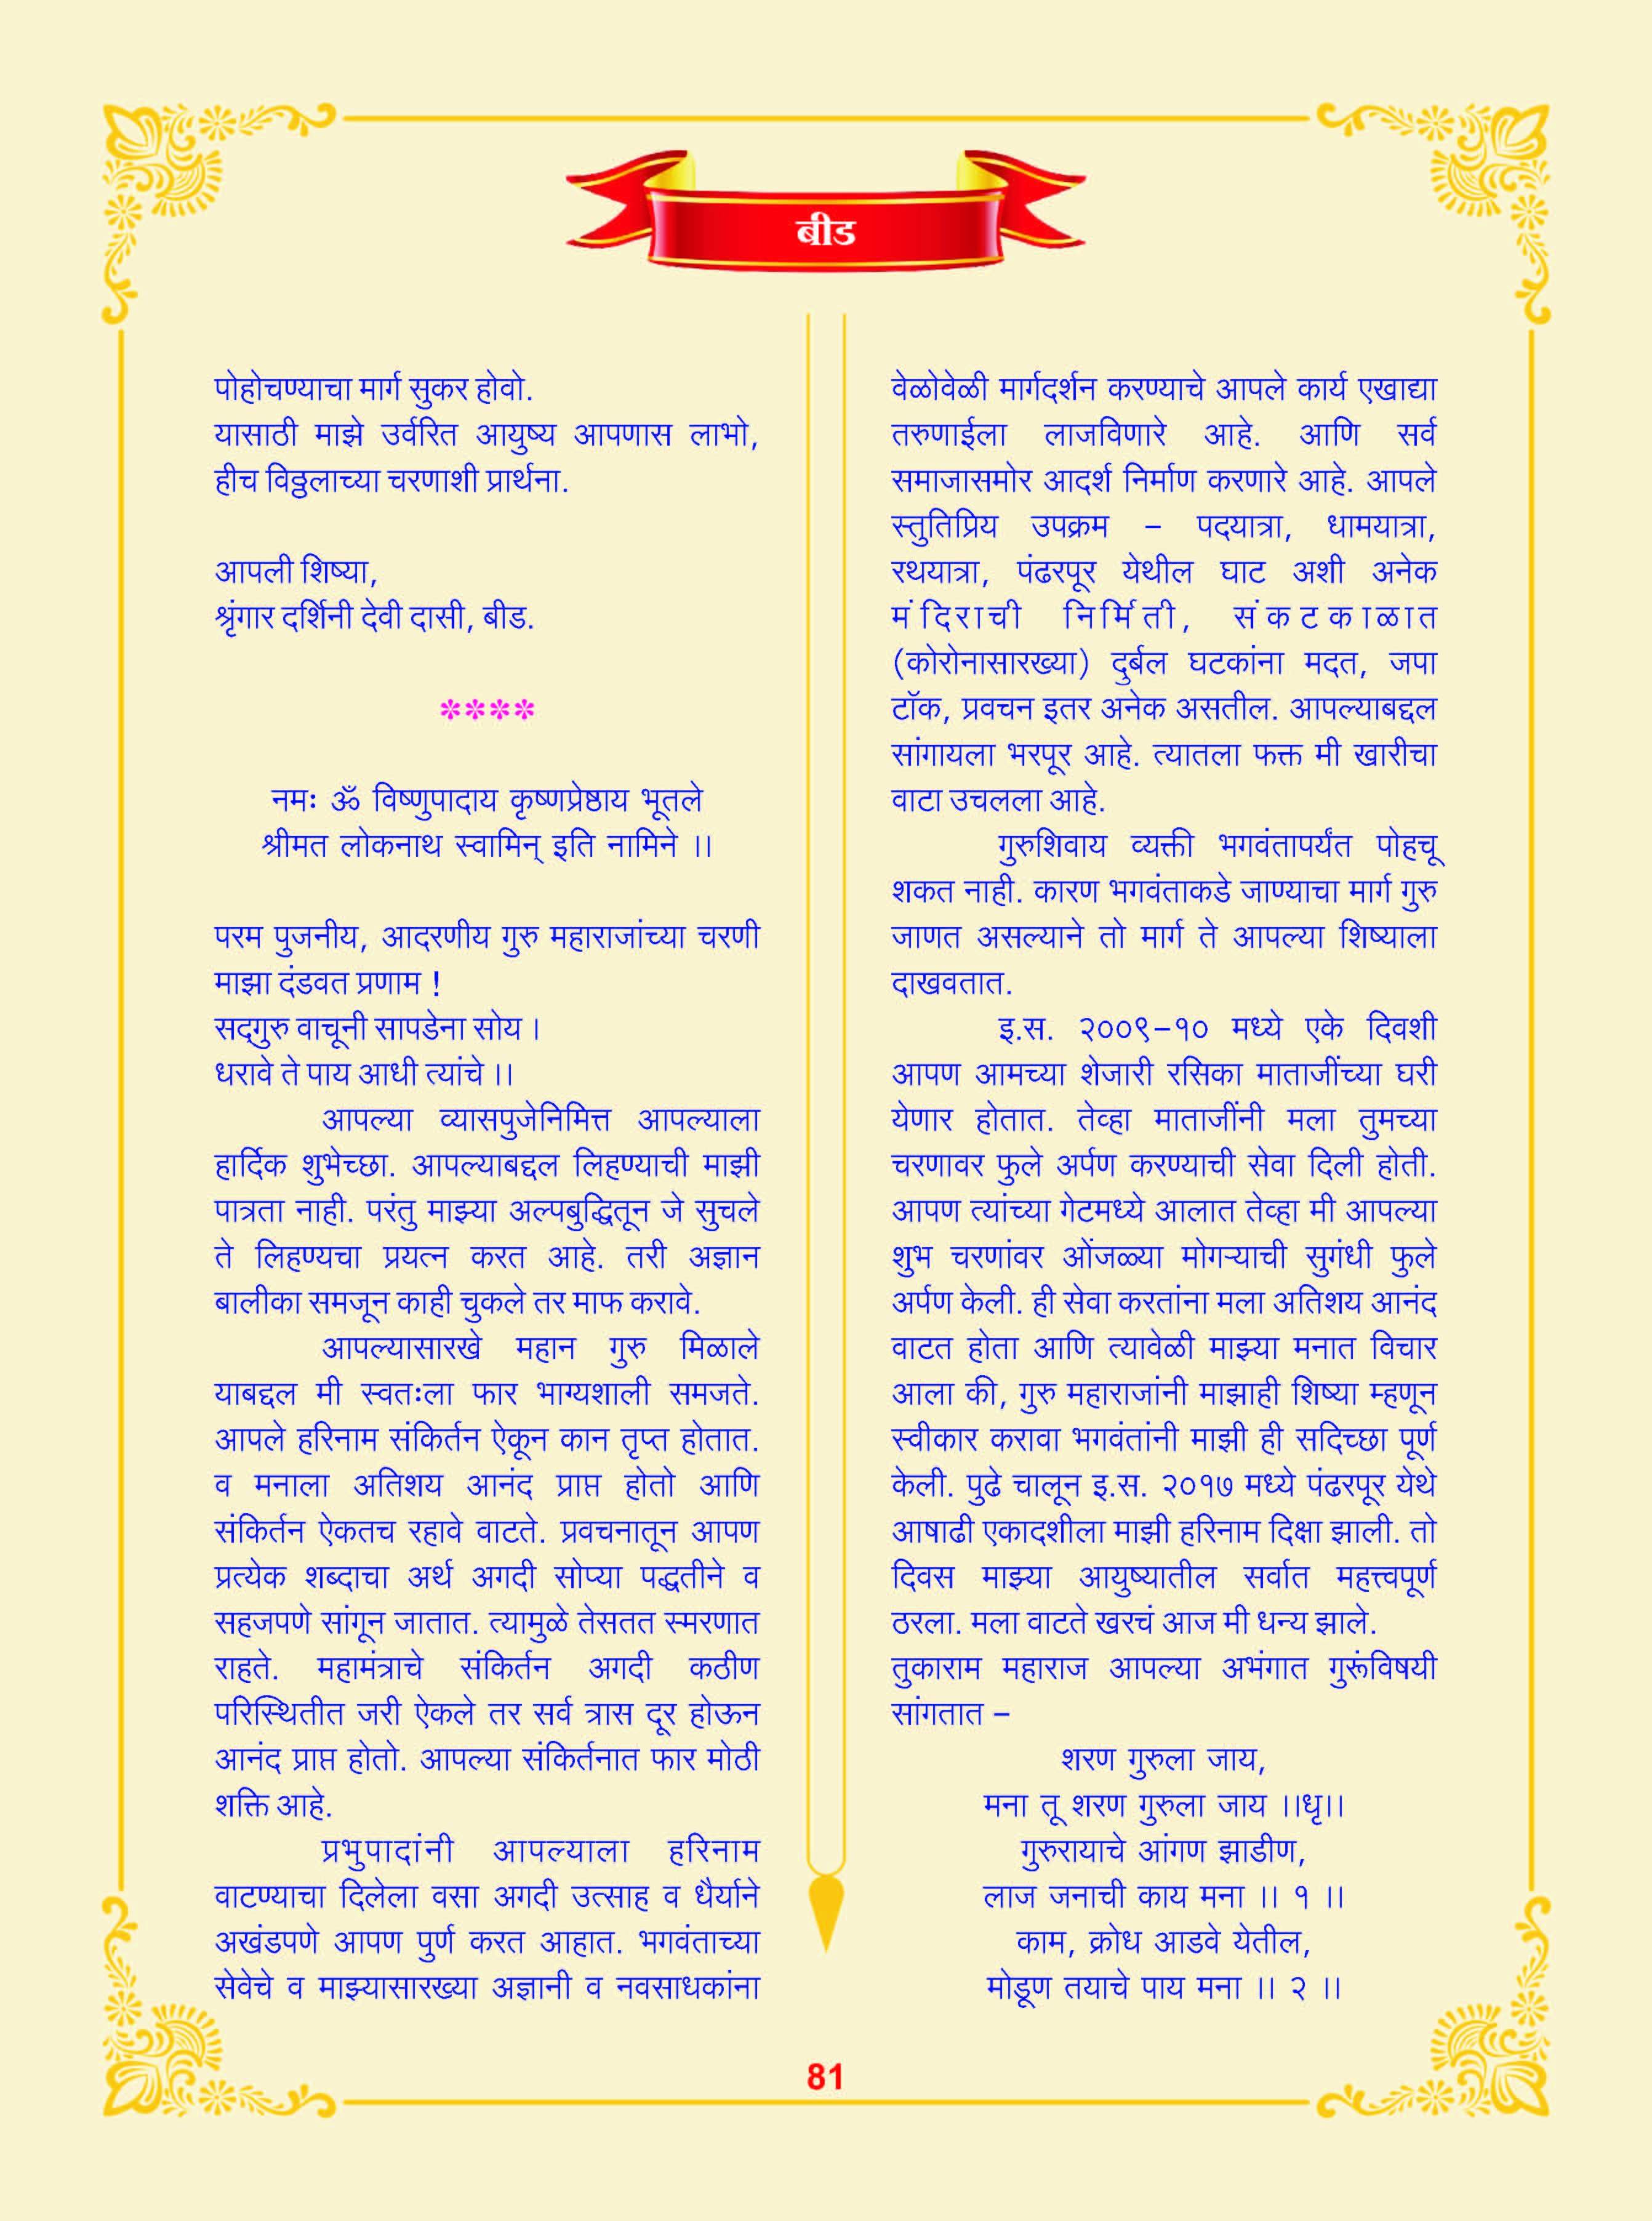 बीड
पोहोचण्याचा मार्ग सुकर होवो.
यासाठी माझे उर्वरित आयुष्य आपणास लाभो,
हीच विठ्ठलाच्या चरणाशी प्रार्थना.
आपली शिष्या,
श्रृंगार दर्शिनी देवी दासी, बीड.
****
नमः ॐ विष्णुपादाय कृष्णप्रेष्ठाय भूतले
श्रीमत लोकनाथ स्वामिन् इति नामिने ।।
परम पुजनीय, आदरणीय गुरु महाराजांच्या चरणी
माझा दंडवत प्रणाम !
सद्‌गुरु वाचूनी सापडेना सोय ।
धरावे ते पाय आधी त्यांचे ।।
आपल्या व्यासपुजेनिमित्त आपल्याला
हार्दिक शुभेच्छा. आपल्याबद्दल लिहण्याची माझी
पात्रता नाही. परंतु माझ्या अल्पबुद्धितून जे सुचले
ते लिहण्यचा प्रयत्न करत आहे. तरी अज्ञान
बालीका समजून काही चुकले तर माफ करावे.
आपल्यासारखे महान गुरु मिळाले
याबद्दल मी स्वतःला फार भाग्यशाली समजते.
आपले हरिनाम संकिर्तन ऐकून कान तृप्त होतात.
व मनाला अतिशय आनंद प्राप्त होतो आणि
संकिर्तन ऐकतच रहावे वाटते. प्रवचनातून आपण
प्रत्येक शब्दाचा अर्थ अगदी सोप्या पद्धतीने व
सहजपणे सांगून जातात. त्यामुळे तेसतत स्मरणात
राहते. महामंत्राचे संकिर्तन अगदी कठीण
परिस्थितीत जरी ऐकले तर सर्व त्रास दूर होऊन
आनंद प्राप्त होतो. आपल्या संकिर्तनात फार मोठी
शक्ति आहे.
प्रभुपादांनी आपल्याला हरिनाम
वाटण्याचा दिलेला वसा अगदी उत्साह व धैर्याने
अखंडपणे आपण पुर्ण करत आहात. भगवंताच्या
सेवेचे व माझ्यासारख्या अज्ञानी व नवसाधकांना
वेळोवेळी मार्गदर्शन करण्याचे आपले कार्य एखाद्या
तरुणाईला लाजविणारे आहे. आणि सर्व
समाजासमोर आदर्श निर्माण करणारे आहे. आपले
स्तुतिप्रिय उपक्रम – पदयात्रा, धामयात्रा,
रथयात्रा, पंढरपूर येथील घाट अशी अनेक
मंदिराची निर्मिती, संकटकाळात
(कोरोनासारख्या) दुर्बल घटकांना मदत, जपा
टॉक, प्रवचन इतर अनेक असतील. आपल्याबद्दल
सांगायला भरपूर आहे. त्यातला फक्त मी खारीचा
वाटा उचलला आहे.
गुरुशिवाय व्यक्ती भगवंतापर्यंत पोहचू
शकत नाही. कारण भगवंताकडे जाण्याचा मार्ग गुरु
जाणत असल्याने तो मार्ग ते आपल्या शिष्याला
दाखवतात.
इ.स. २००९–१० मध्ये एके दिवशी
आपण आमच्या शेजारी रसिका माताजींच्या घरी
येणार होतात. तेव्हा माताजींनी मला तुमच्या
चरणावर फुले अर्पण करण्याची सेवा दिली होती.
आपण त्यांच्या गेटमध्ये आलात तेव्हा मी आपल्या
शुभ चरणांवर ओंजळ्या मोगऱ्याची सुगंधी फुले
अर्पण केली. ही सेवा करतांना मला अतिशय आनंद
वाटत होता आणि त्यावेळी माझ्या मनात विचार
आला की, गुरु महाराजांनी माझाही शिष्या म्हणून
स्वीकार करावा भगवंतांनी माझी ही सदिच्छा पूर्ण
केली. पुढे चालून इ.स. २०१७ मध्ये पंढरपूर येथे
आषाढी एकादशीला माझी हरिनाम दिक्षा झाली. तो
दिवस माझ्या आयुष्यातील सर्वात महत्त्वपूर्ण
ठरला. मला वाटते खरचं आज मी धन्य झाले.
तुकाराम महाराज आपल्या अभंगात गुरूंविषयी
सांगतात –
शरण गुरुला जाय,
मना तू शरण गुरुला जाय ।।धृ।।
गुरुरायाचे आंगण झाडीण,
लाज जनाची काय मना ।। १ ।।
काम, क्रोध आडवे येतील,
मोडूण तयाचे पाय मना ।। २ ।।
81